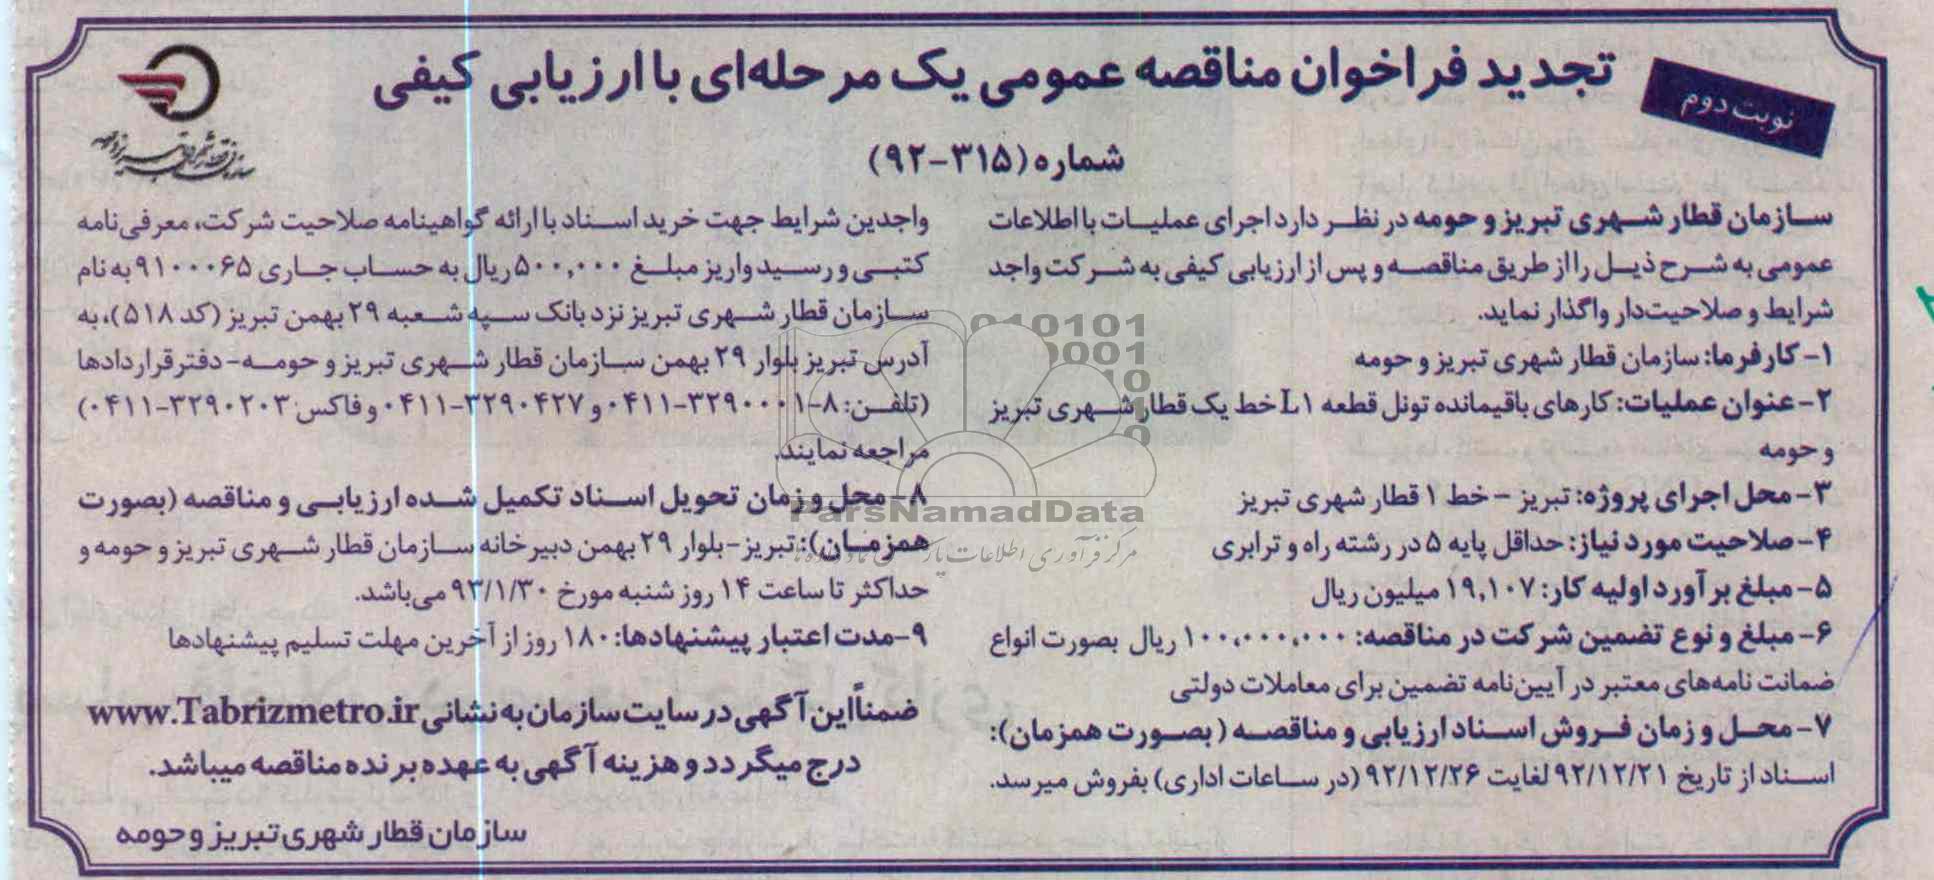 تجدید فراخوان مناقصه عمومی یک مرحله‌ای با ارزیابی کیفی
نوبت دوم
شماره (۳۱۵-۹۲)
سازمان قطار شهری تبریز و حومه
سازمان قطار شهری تبریز و حومه در نظر دارد اجرای عملیات با اطلاعات
عمومی به شرح ذیل را از طریق مناقصه و پس از ارزیابی کیفی به شرکت واجد
شرایط و صلاحیت‌دار واگذار نماید.
۱- کارفرما: سازمان قطار شهری تبریز و حومه
۲- عنوان عملیات: کارهای باقیمانده تونل قطعه L۱ خط یک قطار شهری تبریز
و حومه
۳- محل اجرای پروژه: تبریز - خط ۱ قطار شهری تبریز
۴- صلاحیت مورد نیاز: حداقل پایه ۵ در رشته راه و ترابری
۵- مبلغ برآورد اولیه کار: ۱۹,۱۰۷ میلیون ریال
۶- مبلغ و نوع تضمین شرکت در مناقصه: ۱۰۰,۰۰۰,۰۰۰ ریال بصورت انواع
ضمانت نامه‌های معتبر در آیین‌نامه تضمین برای معاملات دولتی
۷- محل و زمان فروش اسناد ارزیابی و مناقصه (بصورت همزمان):
اسناد از تاریخ ۹۲/۱۲/۲۱ لغایت ۹۲/۱۲/۲۶ (در ساعات اداری) بفروش میرسد.
واجدین شرایط جهت خرید اسناد با ارائه گواهینامه صلاحیت شرکت، معرفی‌نامه
کتبی و رسید واریز مبلغ ۵۰۰,۰۰۰ ریال به حساب جاری ۹۱۰۰۰۶۵ به نام
سازمان قطار شهری تبریز نزد بانک سپه شعبه ۲۹ بهمن تبریز (کد ۵۱۸)، به
آدرس تبریز بلوار ۲۹ بهمن سازمان قطار شهری تبریز و حومه- دفتر قراردادها
(تلفن: ۸-۰۴۱۱-۳۲۹۰۰۰۱ و ۰۴۱۱-۳۲۹۰۴۲۷ و فاکس: ۰۴۱۱-۳۲۹۰۲۰۳)
مراجعه نمایند.
۸- محل و زمان تحویل اسناد تکمیل شده ارزیابی و مناقصه (بصورت
همزمان): تبریز-بلوار ۲۹ بهمن دبیرخانه سازمان قطار شهری تبریز و حومه و
حداکثر تا ساعت ۱۴ روز شنبه مورخ ۹۳/۱/۳۰ می‌باشد.
۹-مدت اعتبار پیشنهادها: ۱۸۰ روز از آخرین مهلت تسلیم پیشنهادها
ضمناً این آگهی در سایت سازمان به نشانی www.Tabrizmetro.ir
درج میگردد و هزینه آگهی به عهده برنده مناقصه میباشد.
سازمان قطار شهری تبریز و حومه
ParsNamadData